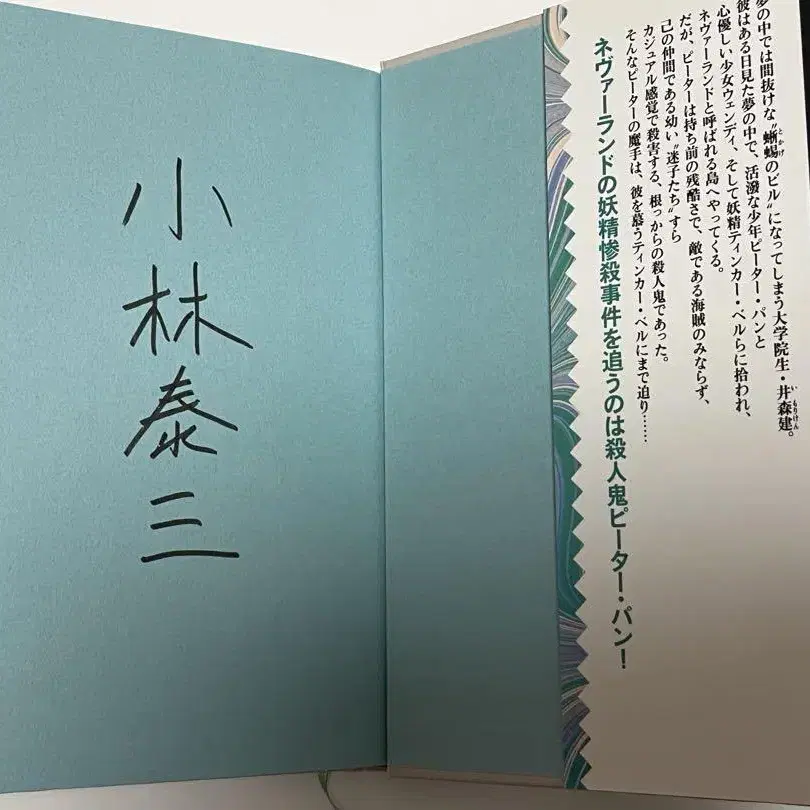 小林泰三
夢の中では間抜けな〝蜥蜴のビル〟になってしまう大学院生・井森建。
彼はある日見た夢の中で、活潑な少年ピーター・パンと
心優しい少女ウェンディ、そして妖精ティンカー・ベルらに拾われ、
ネヴァーランドと呼ばれる島へやってくる。
だが、ピーターは持ち前の残酷さで、敵である海賊のみならず、
己の仲間である幼い〝迷子たち〟すら
カジュアル感覚で殺害する、根っからの殺人鬼であった。
そんなピーターの魔手は、彼を慕うティンカー・ベルにまで迫り……
ネヴァーランドの妖精惨殺事件を追うのは殺人鬼ピーター・パン！